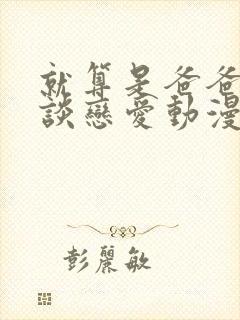 就算是爸爸
談戀愛動漫
彭麗敏